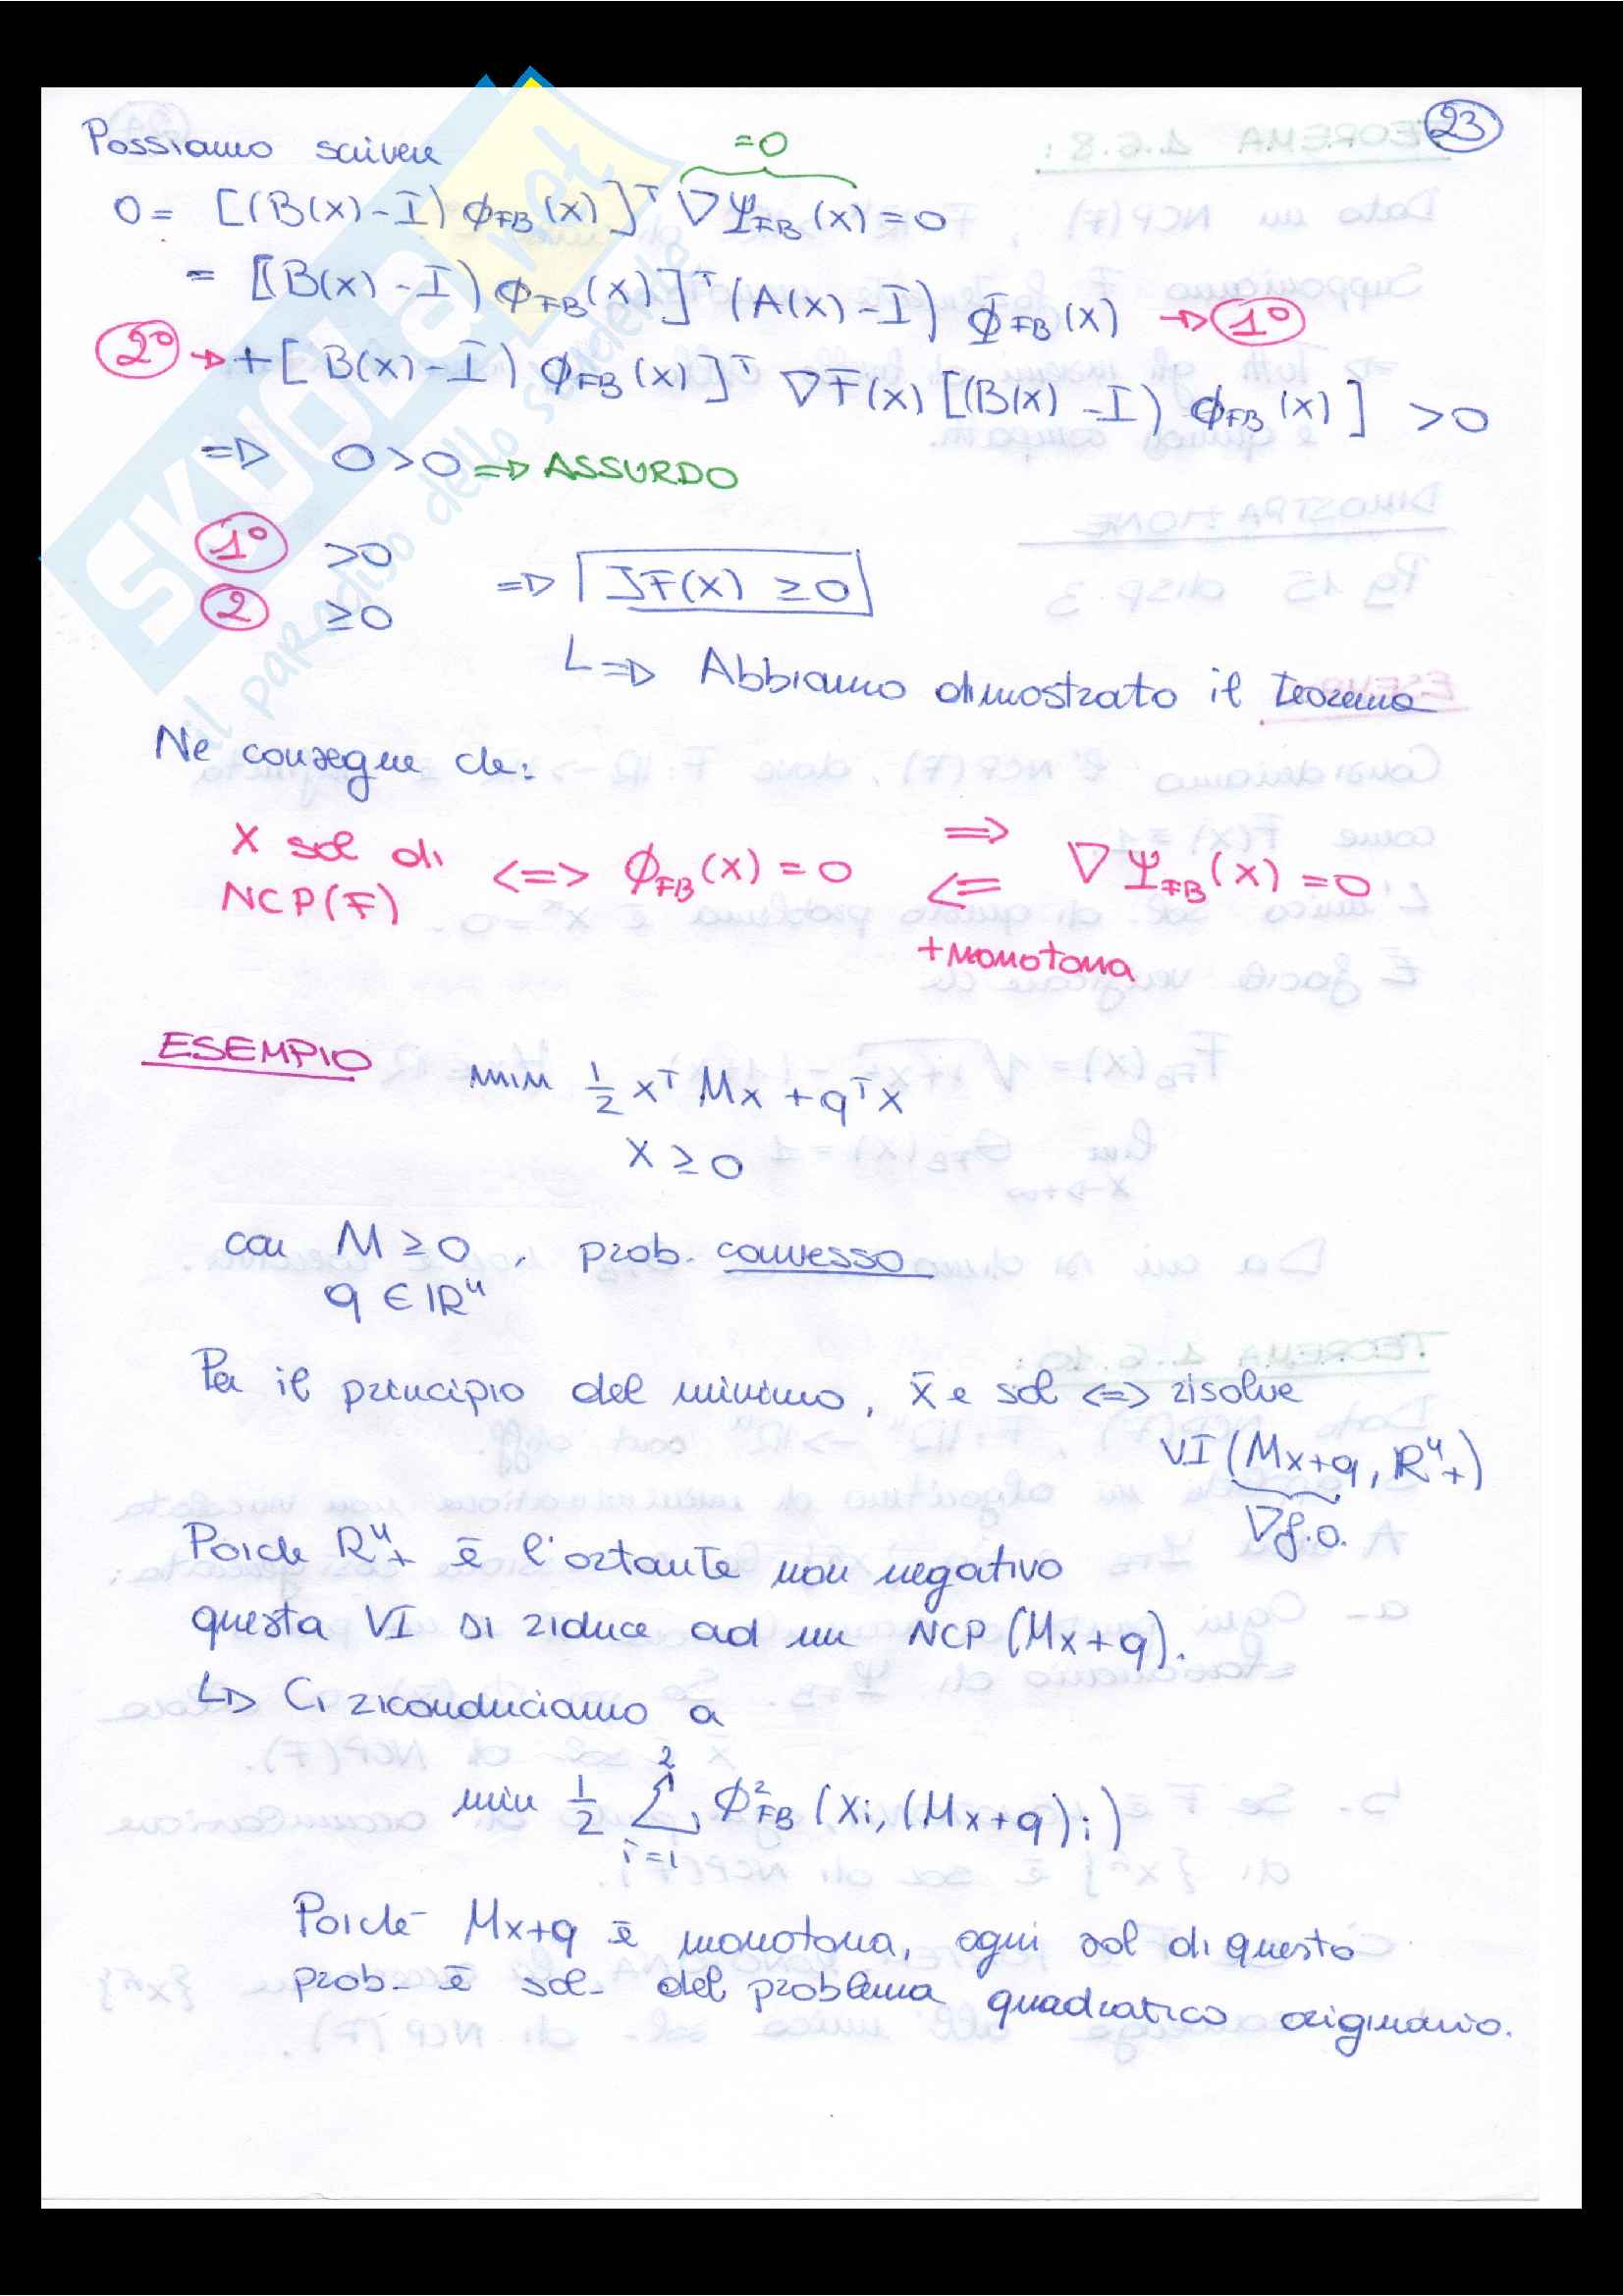 23
Possiamo scrivere
=0
0 = [(B(x)-I) ϕFB(x)]ᵀ ∇ΨFB(x) = 0
= [(B(x)-I) ϕFB(x)]ᵀ (A(x)-I) ϕFB(x) → 1°
2° → + [B(x)-I) ϕFB(x)]ᵀ ∇F(x) [(B(x)-I) ϕFB(x)] > 0
=> 0>0 => ASSURDO
1° >0
2 ≥0 => JF(x) ≥0
L=> Abbiamo dimostrato il teorema
Ne consegue che:
x sol di NCP(F) <=> ϕFB(x)=0 => <= ∇ΨFB(x)=0
+monotona
ESEMPIO min 1/2 xᵀMx + qᵀx
x ≥ 0
con M ≥ 0, prob. convesso
q ∈ ℝⁿ
Per il principio del minimo, x̄ è sol <=> risolve
VI (Mx+q, ℝⁿ₊)
∇f.o.
Poiché ℝⁿ₊ è l'ortante non negativo
questa VI si riduce ad un NCP (Mx+q).
L> Ci riconduciamo a
min 1/2 Σ i=1 2 ϕ²FB (xi, (Mx+q)i)
Poiché Mx+q è monotona, ogni sol di questo
prob. è sol. del problema quadratico originario.
SKUOLA.net
il paradiso dello studente